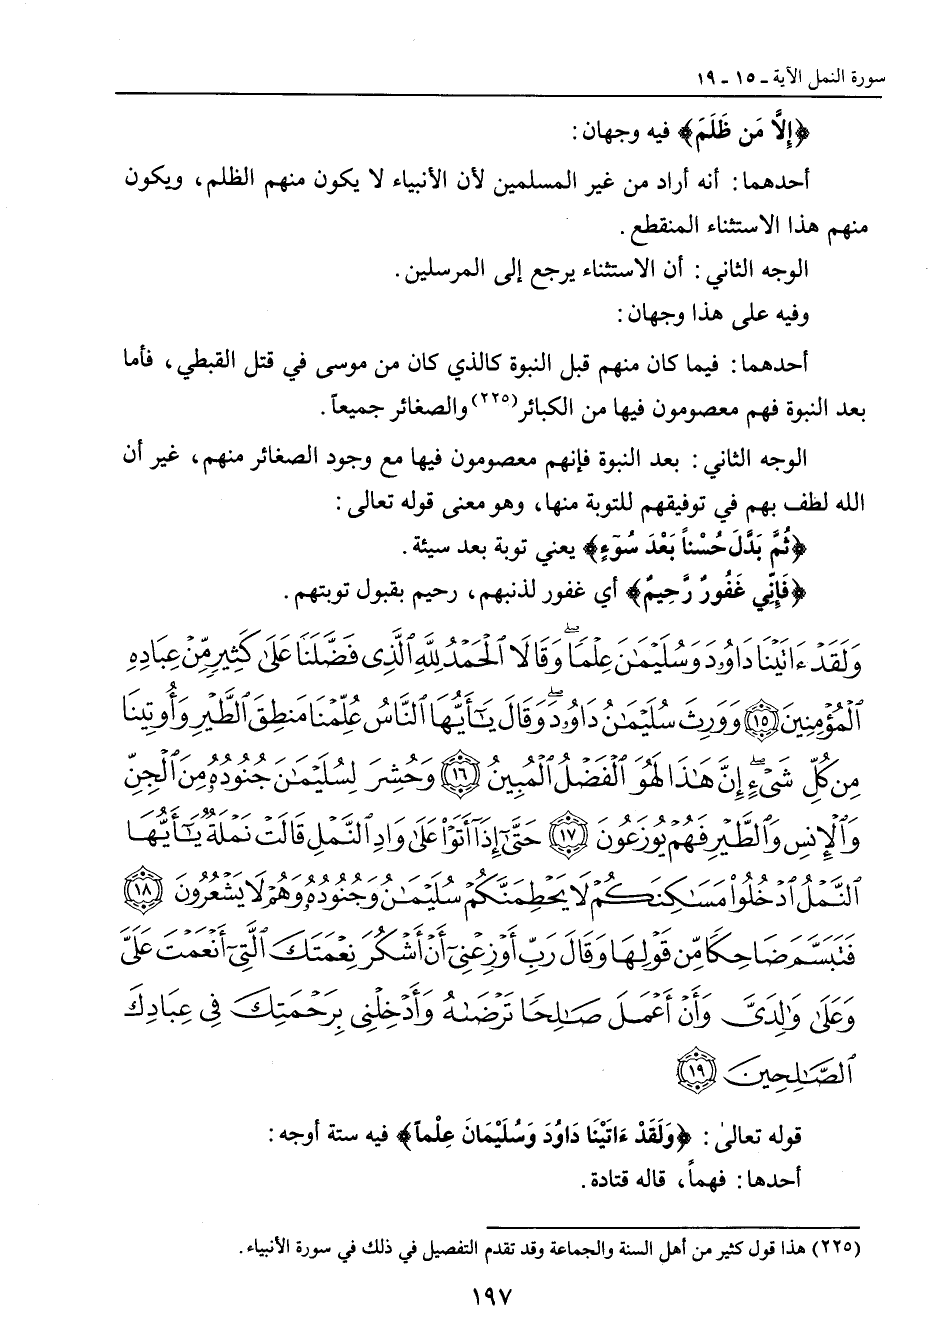 سورة النمل الآية ـ ١٥ ـ ١٩
﴿إِلَّا مَن ظَلَمَ﴾ فيه وجهان:
أحدهما: أنه أراد من غير المسلمين لأن الأنبياء لا يكون منهم الظلم، ويكون
منهم هذا الاستثناء المنقطع.
الوجه الثاني: أن الاستثناء يرجع إلى المرسلين.
وفيه على هذا وجهان:
أحدهما: فيما كان منهم قبل النبوة كالذي كان من موسى في قتل القبطي، فأما
بعد النبوة فهم معصومون فيها من الكبائر(٢٢٥) والصغائر جميعاً.
الوجه الثاني: بعد النبوة فإنهم معصومون فيها مع وجود الصغائر منهم، غير أن
الله لطف بهم في توفيقهم للتوبة منها، وهو معنى قوله تعالى:
﴿ثُمَّ بَدَّلَ حُسْناً بَعْدَ سُوٓءٍ﴾ يعني توبة بعد سيئة.
﴿فَإِنِّي غَفُورٌ رَّحِيمٌ﴾ أي غفور لذنبهم، رحيم بقبول توبتهم.
وَلَقَدْ ءَاتَيْنَا دَاوُۥدَ وَسُلَيْمَٰنَ عِلْمًا ۖ وَقَالَا ٱلْحَمْدُ لِلَّهِ ٱلَّذِى فَضَّلَنَا عَلَىٰ كَثِيرٍ مِّنْ عِبَادِهِ
ٱلْمُؤْمِنِينَ ١٥ وَوَرِثَ سُلَيْمَٰنُ دَاوُۥدَ ۖ وَقَالَ يَٰٓأَيُّهَا ٱلنَّاسُ عُلِّمْنَا مَنطِقَ ٱلطَّيْرِ وَأُوتِينَا
مِن كُلِّ شَىْءٍ ۖ إِنَّ هَٰذَا لَهُوَ ٱلْفَضْلُ ٱلْمُبِينُ ١٦ وَحُشِرَ لِسُلَيْمَٰنَ جُنُودُهُۥ مِنَ ٱلْجِنِّ
وَٱلْإِنسِ وَٱلطَّيْرِ فَهُمْ يُوزَعُونَ ١٧ حَتَّىٰٓ إِذَآ أَتَوْا۟ عَلَىٰ وَادِ ٱلنَّمْلِ قَالَتْ نَمْلَةٌ يَٰٓأَيُّهَا
ٱلنَّمْلُ ٱدْخُلُوا۟ مَسَٰكِنَكُمْ لَا يَحْطِمَنَّكُمْ سُلَيْمَٰنُ وَجُنُودُهُۥ وَهُمْ لَا يَشْعُرُونَ ١٨
فَتَبَسَّمَ ضَاحِكًا مِّن قَوْلِهَا وَقَالَ رَبِّ أَوْزِعْنِىٓ أَنْ أَشْكُرَ نِعْمَتَكَ ٱلَّتِىٓ أَنْعَمْتَ عَلَىَّ
وَعَلَىٰ وَٰلِدَىَّ وَأَنْ أَعْمَلَ صَٰلِحًا تَرْضَىٰهُ وَأَدْخِلْنِى بِرَحْمَتِكَ فِى عِبَادِكَ
ٱلصَّٰلِحِينَ ١٩
قوله تعالىٰ: ﴿وَلَقَدْ ءَاتَيْنَا دَاوُدَ وَسُلَيْمَانَ عِلْماً﴾ فيه ستة أوجه:
أحدها: فهماً، قاله قتادة.
(٢٢٥) هذا قول كثير من أهل السنة والجماعة وقد تقدم التفصيل في ذلك في سورة الأنبياء.
١٩٧